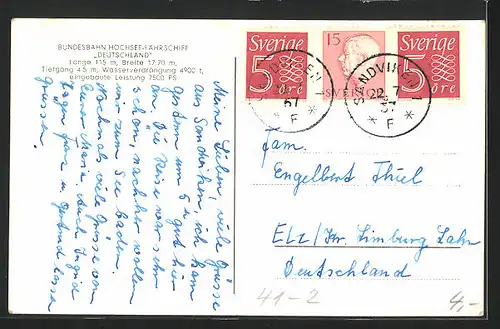 BUNDESBAHN HOCHSEE-FÄHRSCHIFF
„DEUTSCHLAND"
Länge 115 m, Breite 17,70 m,
Tiefgang 4,5 m, Wasserverdrängung 4900 t,
eingebaute Leistung 7500 PS
Meine Lieben, viele Grüsse
aus Sandviken ich kam
gestern um 5 gut hier
an. Die Reise war sehr
schön, nachher wollen
wir zum See baden.
Nochmals viele Grüsse von
Eurer
grüssen.
Sverige
5
öre
15
SVERIGE
Sverige
5
öre
SANDVIKEN 1
57
F
SANDVIKEN 1
22 7
57
F
Fam.
Engelbert Thiel
Elz/Kr. Limburg Lahn
Deutschland
41-2
4,-